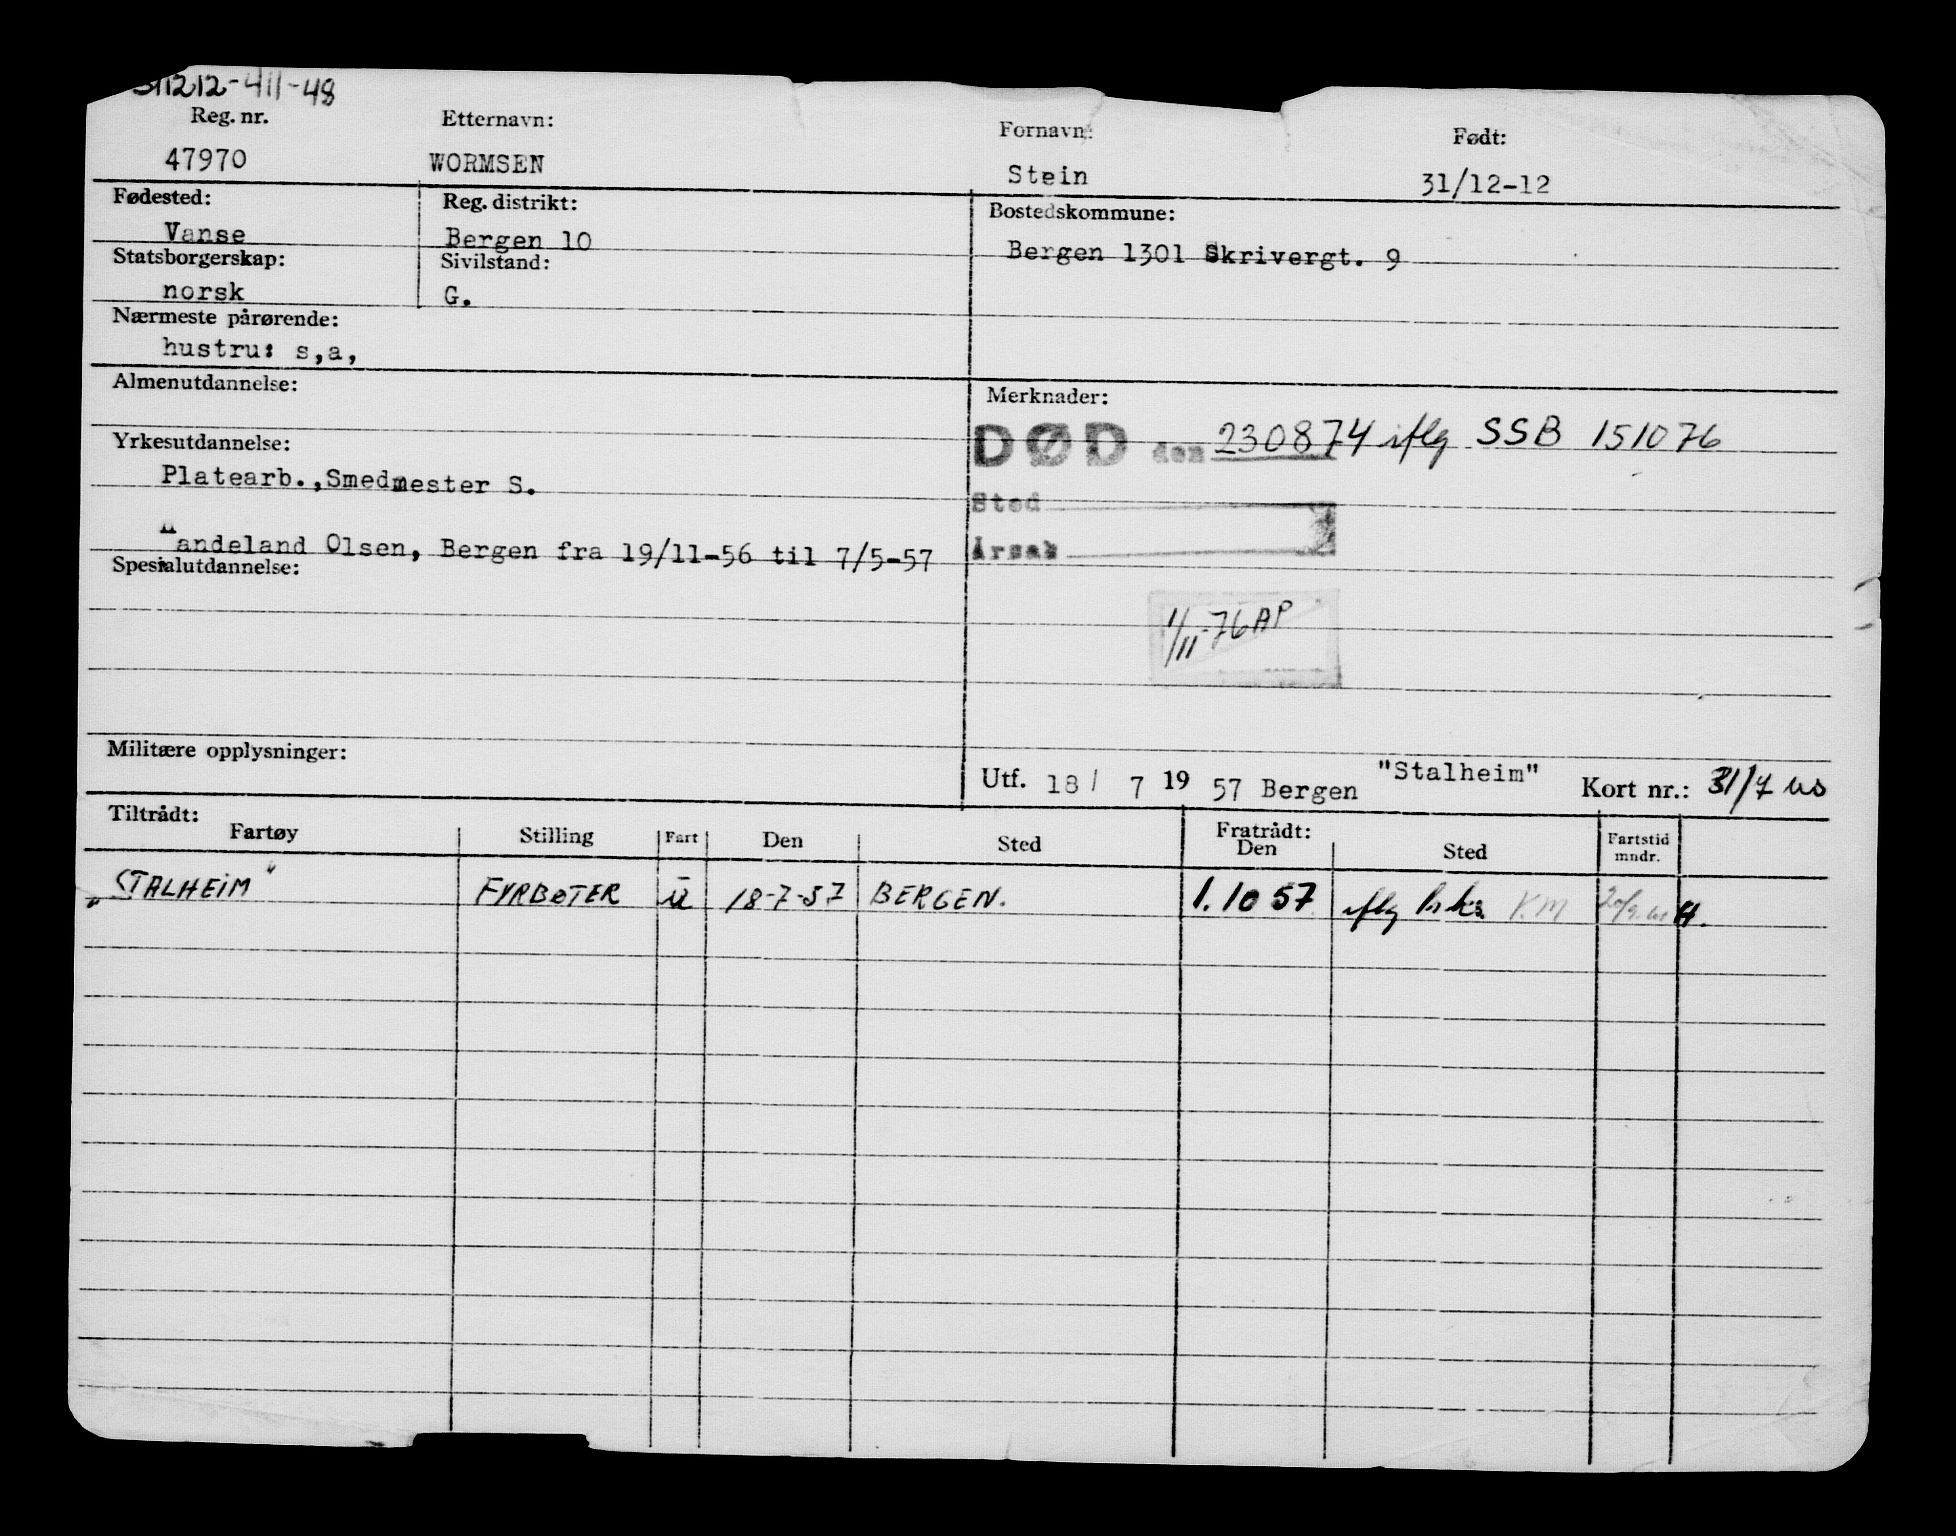 311212-411-48
Reg. nr. Etternavn: Fornavn: Født:
47970 WORMSEN Stein 31/12-12
Fødested: Reg. distrikt: Bostedskommune:
Vanse Bergen 10 Bergen 1301 Skrivergt. 9
Statsborgerskap: Sivilstand:
norsk G.
Nærmeste pårørende:
hustru: s,a,
Almenutdannelse: Merknader:
DØD den 230874 iflg SSB 151076
Yrkesutdannelse:
Platearb.,Smedmester S.
Sted
andeland Olsen, Bergen fra 19/11-56 til 7/5-57
Årsak
Spesialutdannelse:
1/11-76 AP
Militære opplysninger:
Utf. 18/ 7 19 57 Bergen "Stalheim" Kort nr.: 31/7
Tiltrådt: Fratrådt:
Fartøy Stilling Fart Den Sted Den Sted Fartstid mndr.
"STALHEIM" FYRBØTER U 18-7-57 BERGEN. 1.10 57 iflg KM H.